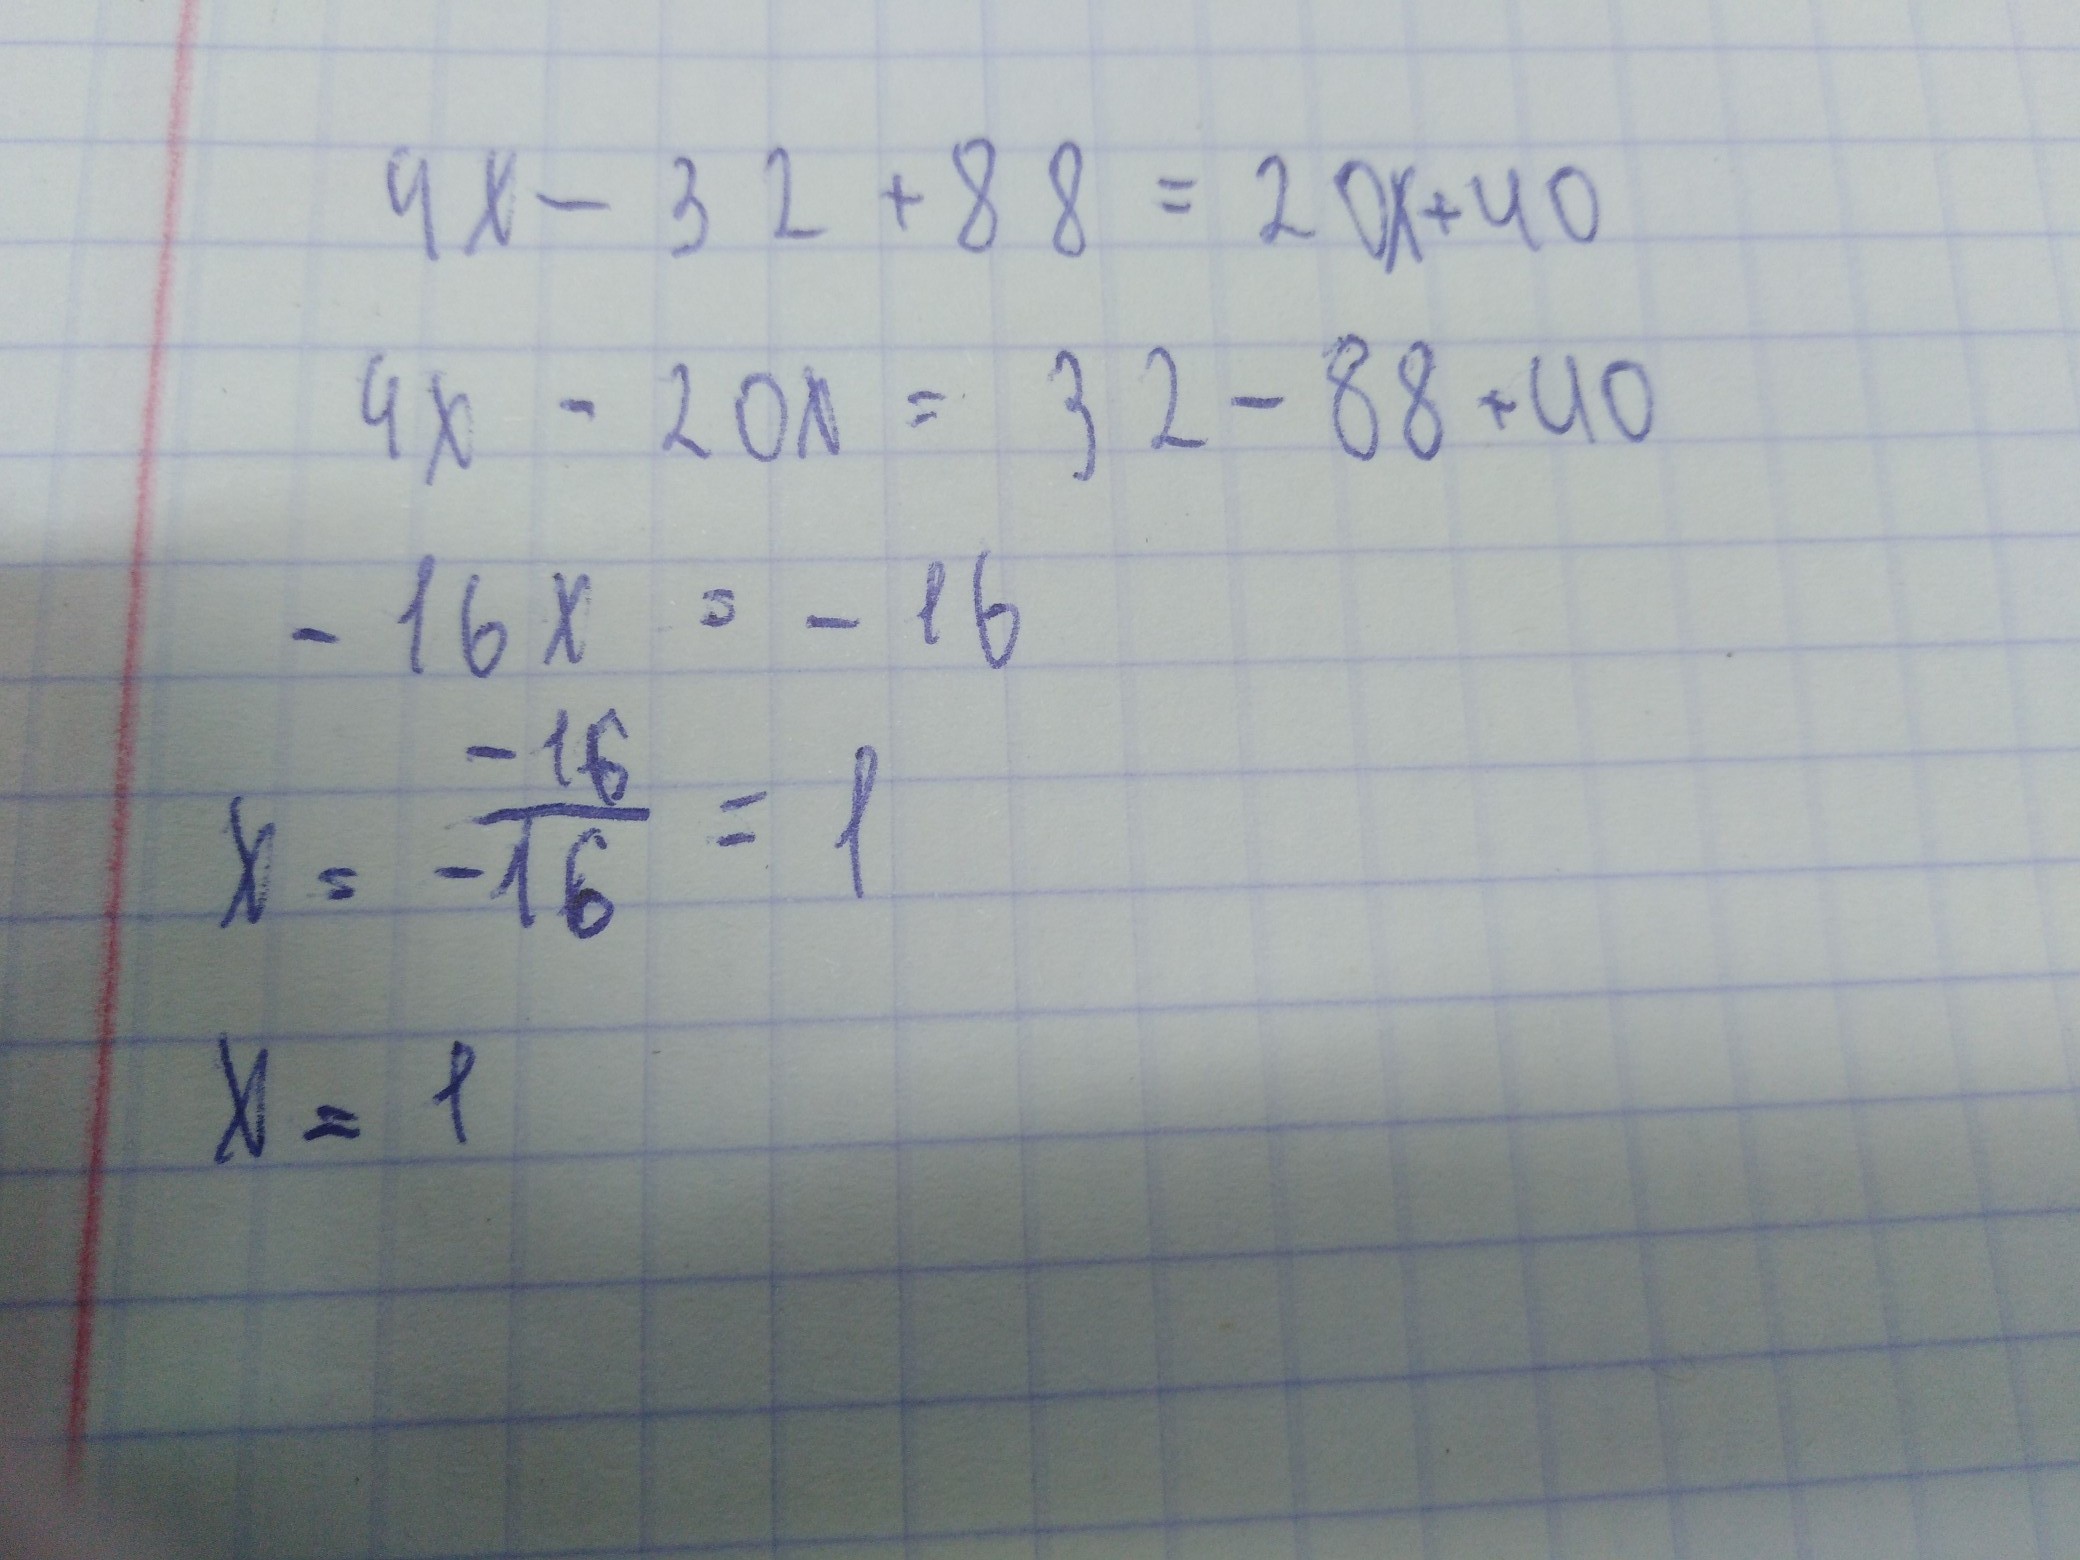 4x - 32 + 88 = 20x + 40
4x - 20x = 32 - 88 + 40
- 16x = - 16
x = -16/-16 = 1
x = 1